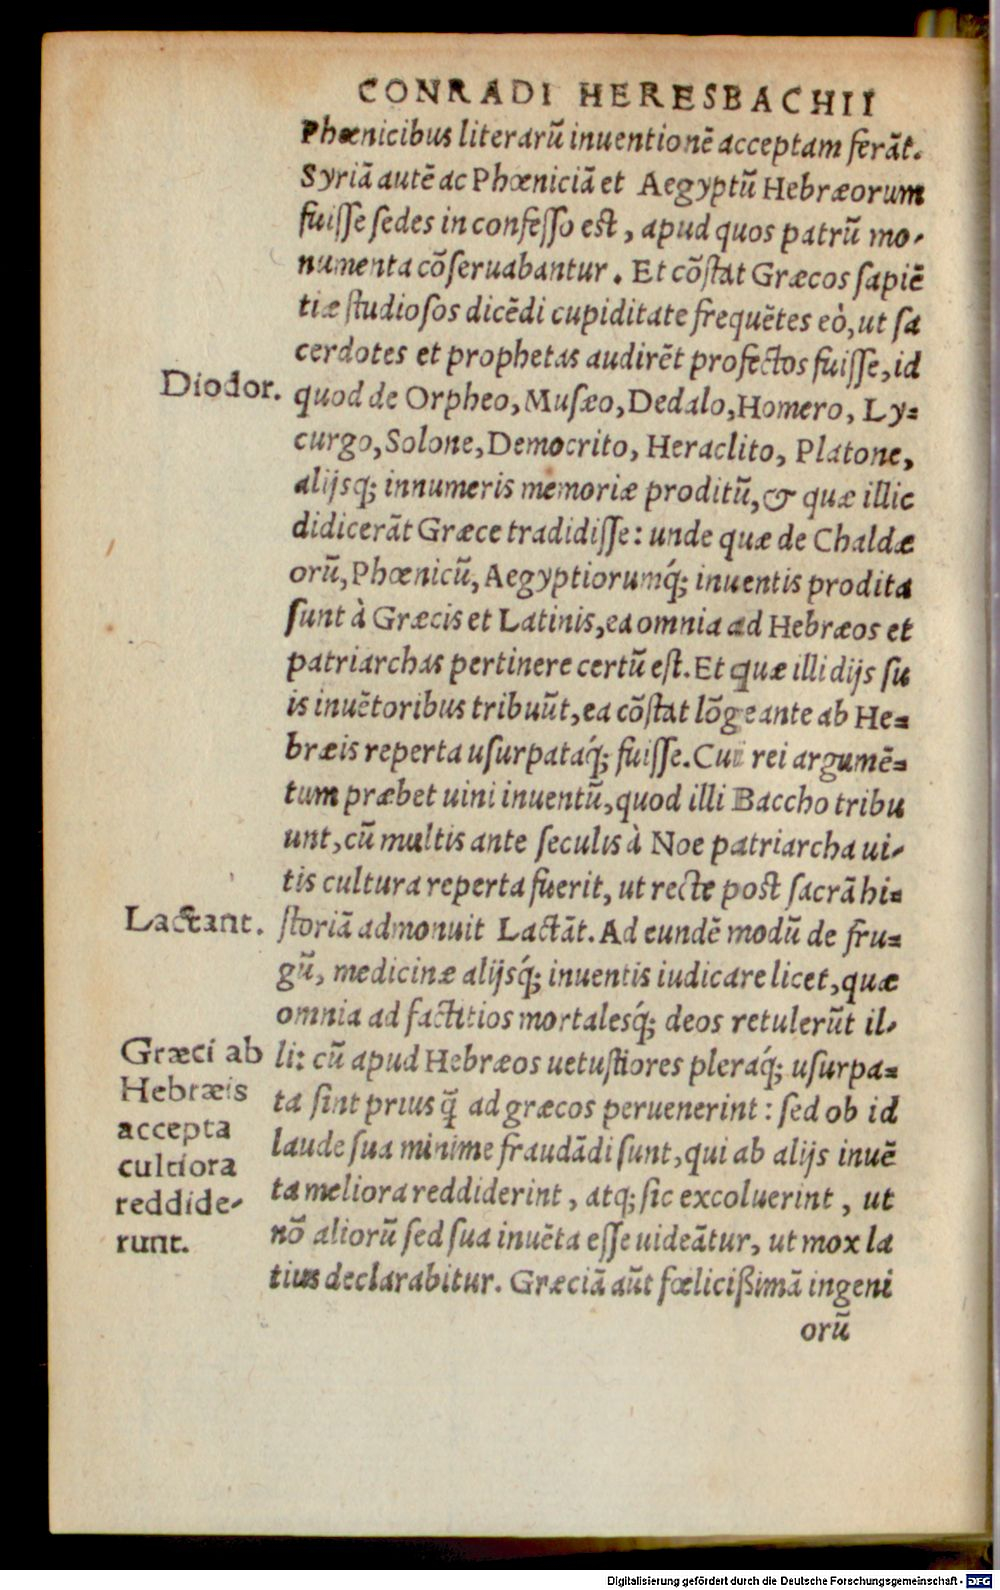 CONRADI HERESBACHII
Phœnicibus literarũ inuentionẽ acceptam ferãt.
Syriã autẽ ac Phœniciã et Aegyptũ Hebræorum
fuiſſe ſedes in confeſſo eſt, apud quos patrũ mo-
numenta cõſeruabantur. Et cõſtat Græcos ſapiẽ
tiæ ſtudioſos dicẽdi cupiditate frequẽtes eò, ut ſa
cerdotes et prophetas audirẽt profectos fuiſſe, id
Diodor.
quod de Orpheo, Muſæo, Dedalo, Homero, Ly-
curgo, Solone, Democrito, Heraclito, Platone,
alijsq; innumeris memoriæ proditũ, & quæ illic
didicerãt Græce tradidiſſe: unde quæ de Chaldæ
orũ, Phœnicũ, Aegyptiorumq́; inuentis prodita
ſunt à Græcis et Latinis, ea omnia ad Hebræos et
patriarchas pertinere certũ eſt. Et quæ illi dijs ſu
is inuẽtoribus tribuũt, ea cõſtat lõge ante ab He-
bræis reperta uſurpataq́; fuiſſe. Cui rei argumẽ-
tum præbet uini inuentũ, quod illi Baccho tribu
unt, cũ multis ante ſeculis à Noe patriarcha ui-
tis cultura reperta fuerit, ut recte poſt ſacrã hi-
Lactant.
ſtoriã admonuit Lactãt. Ad eundẽ modũ de fru-
gũ, medicinæ alijsq́; inuentis iudicare licet, quæ
omnia ad factitios mortalesq́; deos retulerũt il-
li: cũ apud Hebræos uetuſtiores pleraq́; uſurpa-
ta ſint prius q̃ ad græcos peruenerint: ſed ob id
laude ſua minime fraudãdi ſunt, qui ab alijs inuẽ
ta meliora reddiderint, atq; ſic excoluerint, ut
nõ aliorũ ſed ſua inuẽta eſſe uideãtur, ut mox la
tius declarabitur. Græciã aũt fœliciſsimã ingeni
Græci ab
Hebræis
accepta
cultiora
reddide-
runt.
orũ
Digitalisierung gefördert durch die Deutsche Forschungsgemeinschaft - DFG